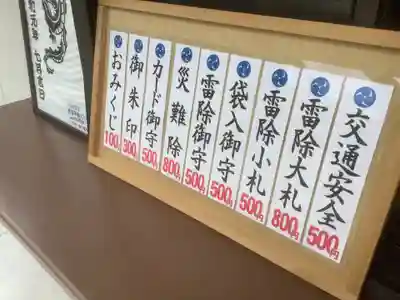 交通安全 500円
雷除大札 800円
雷除小札 500円
袋入御守 500円
雷除御守 500円
災難除 800円
カード御守 500円
御朱印 300円
おみくじ 100円